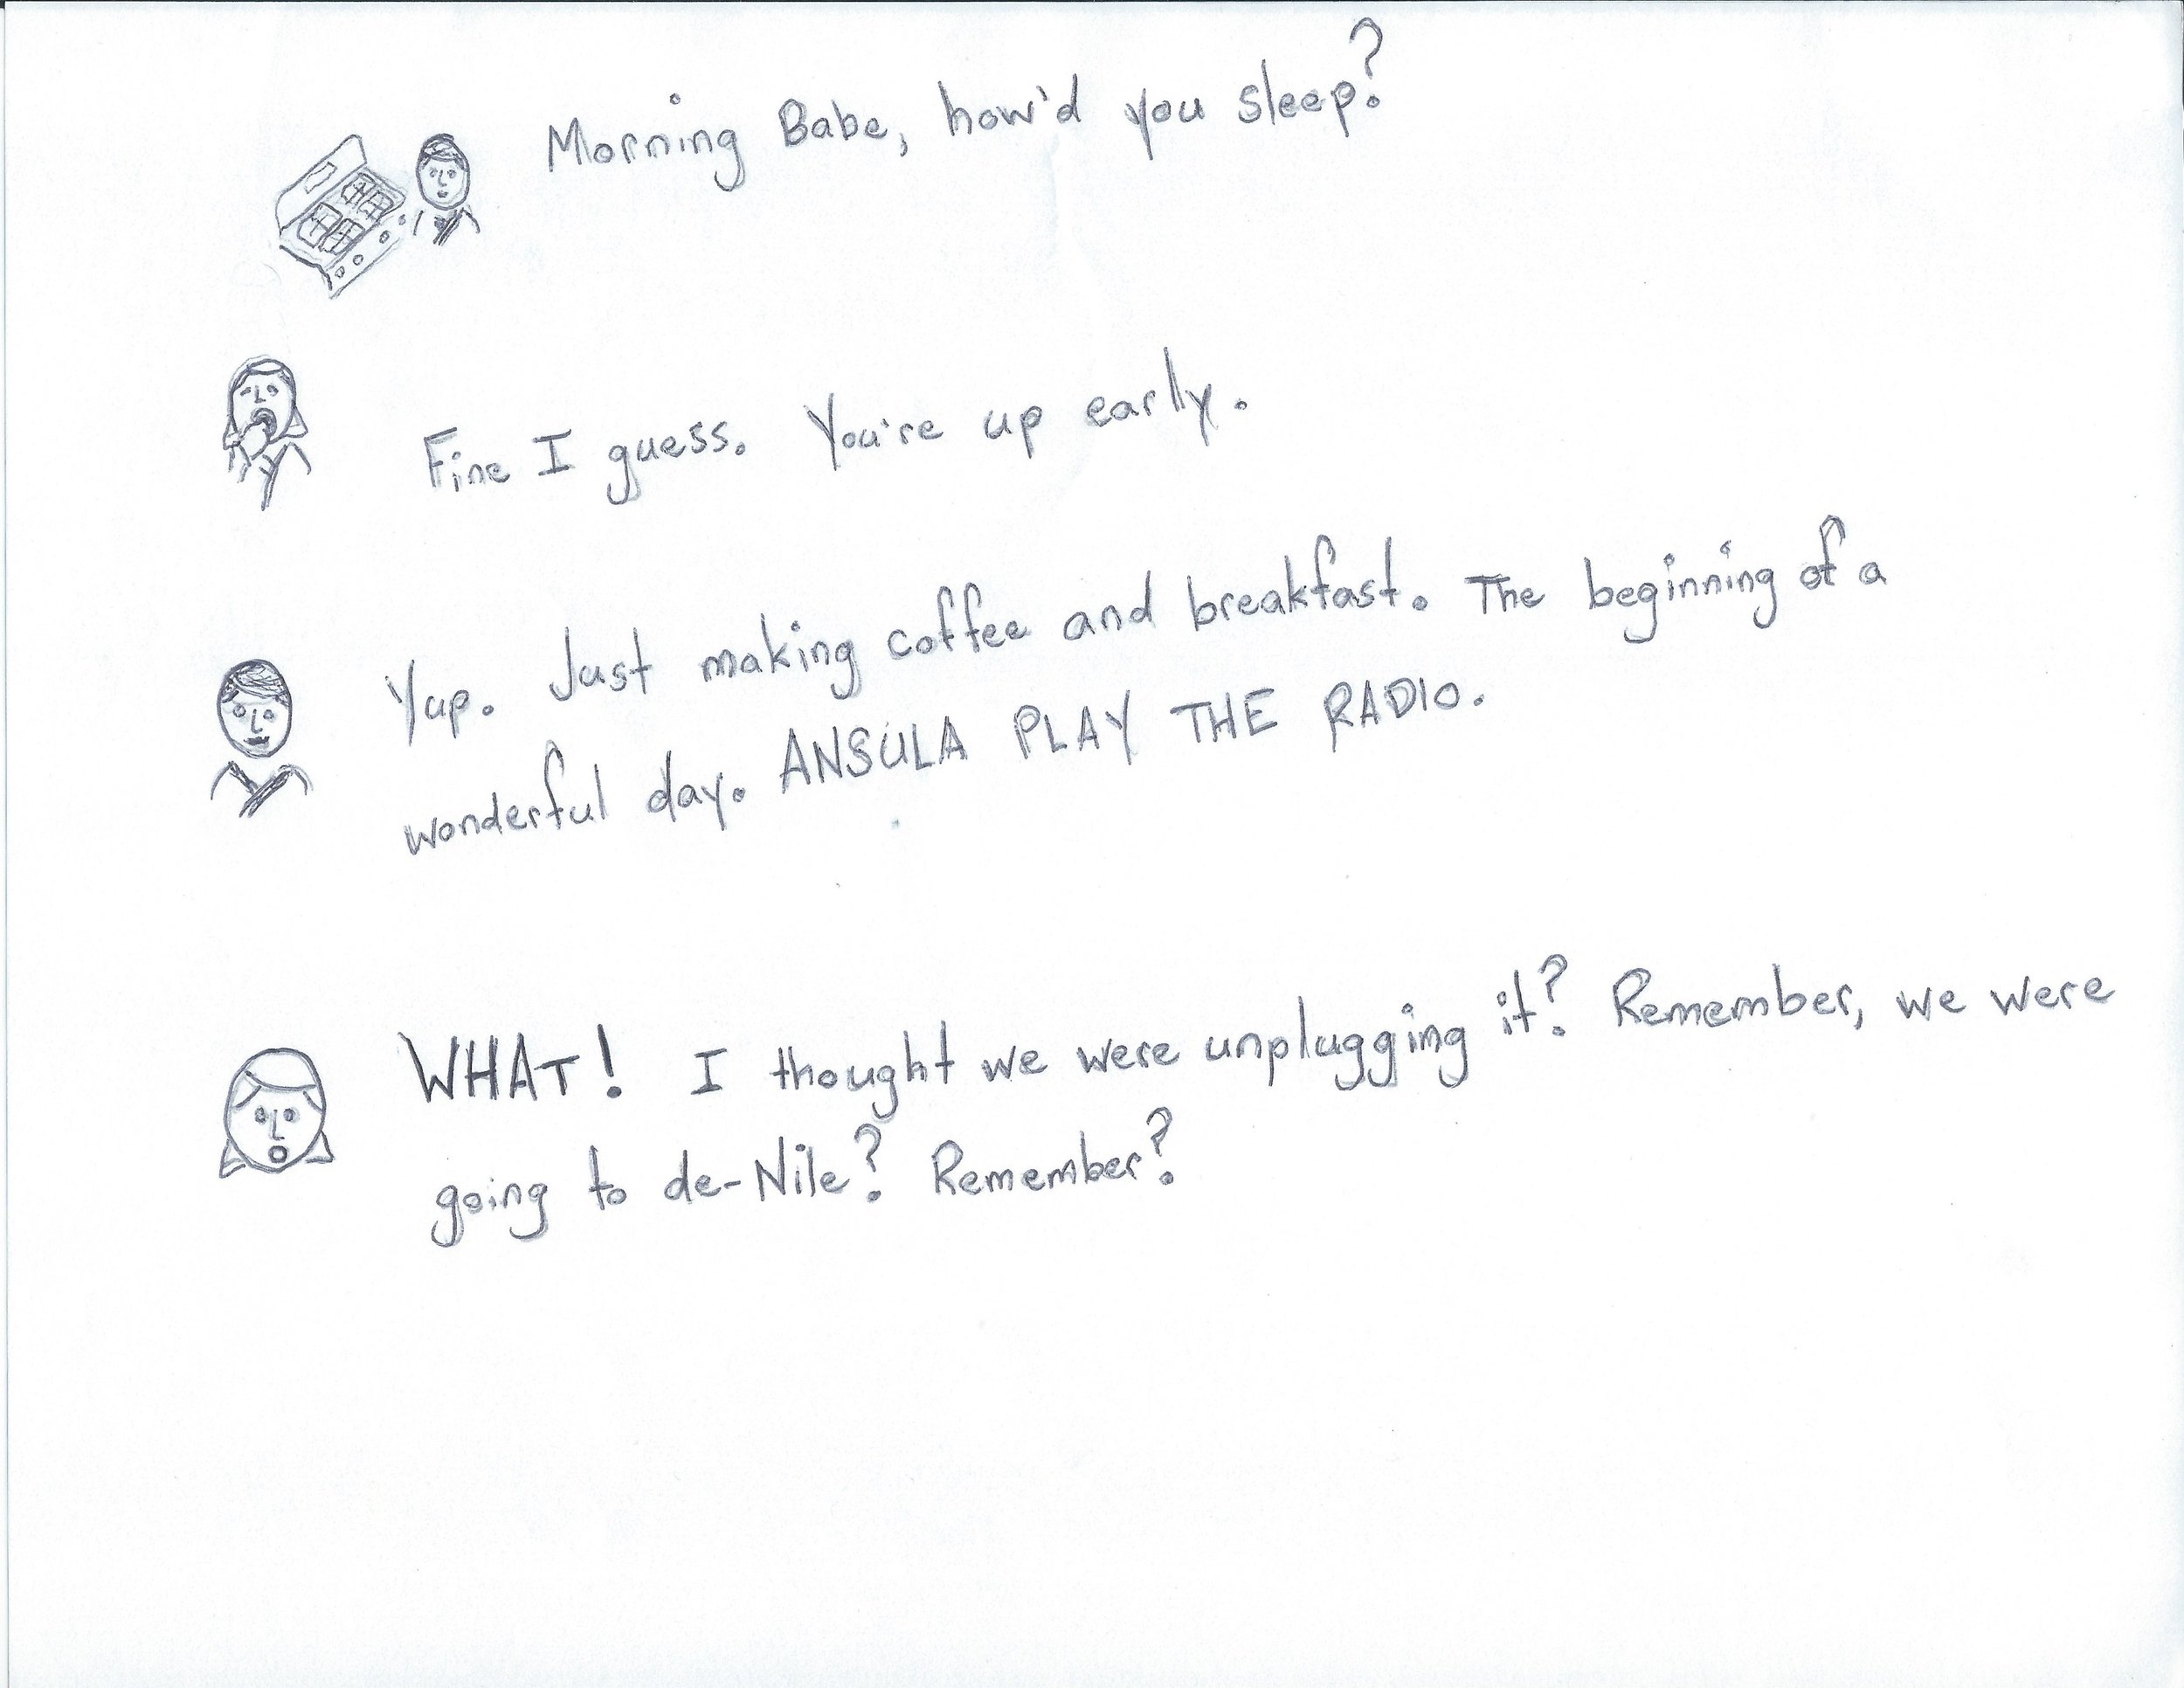 Morning Babe, how'd you sleep?
Fine I guess. You're up early.
Yup. Just making coffee and breakfast. The beginning of a
wonderful day. ANSULA PLAY THE RADIO.
WHAT! I thought we were unplugging it? Remember, we were
going to de-Nile? Remember?